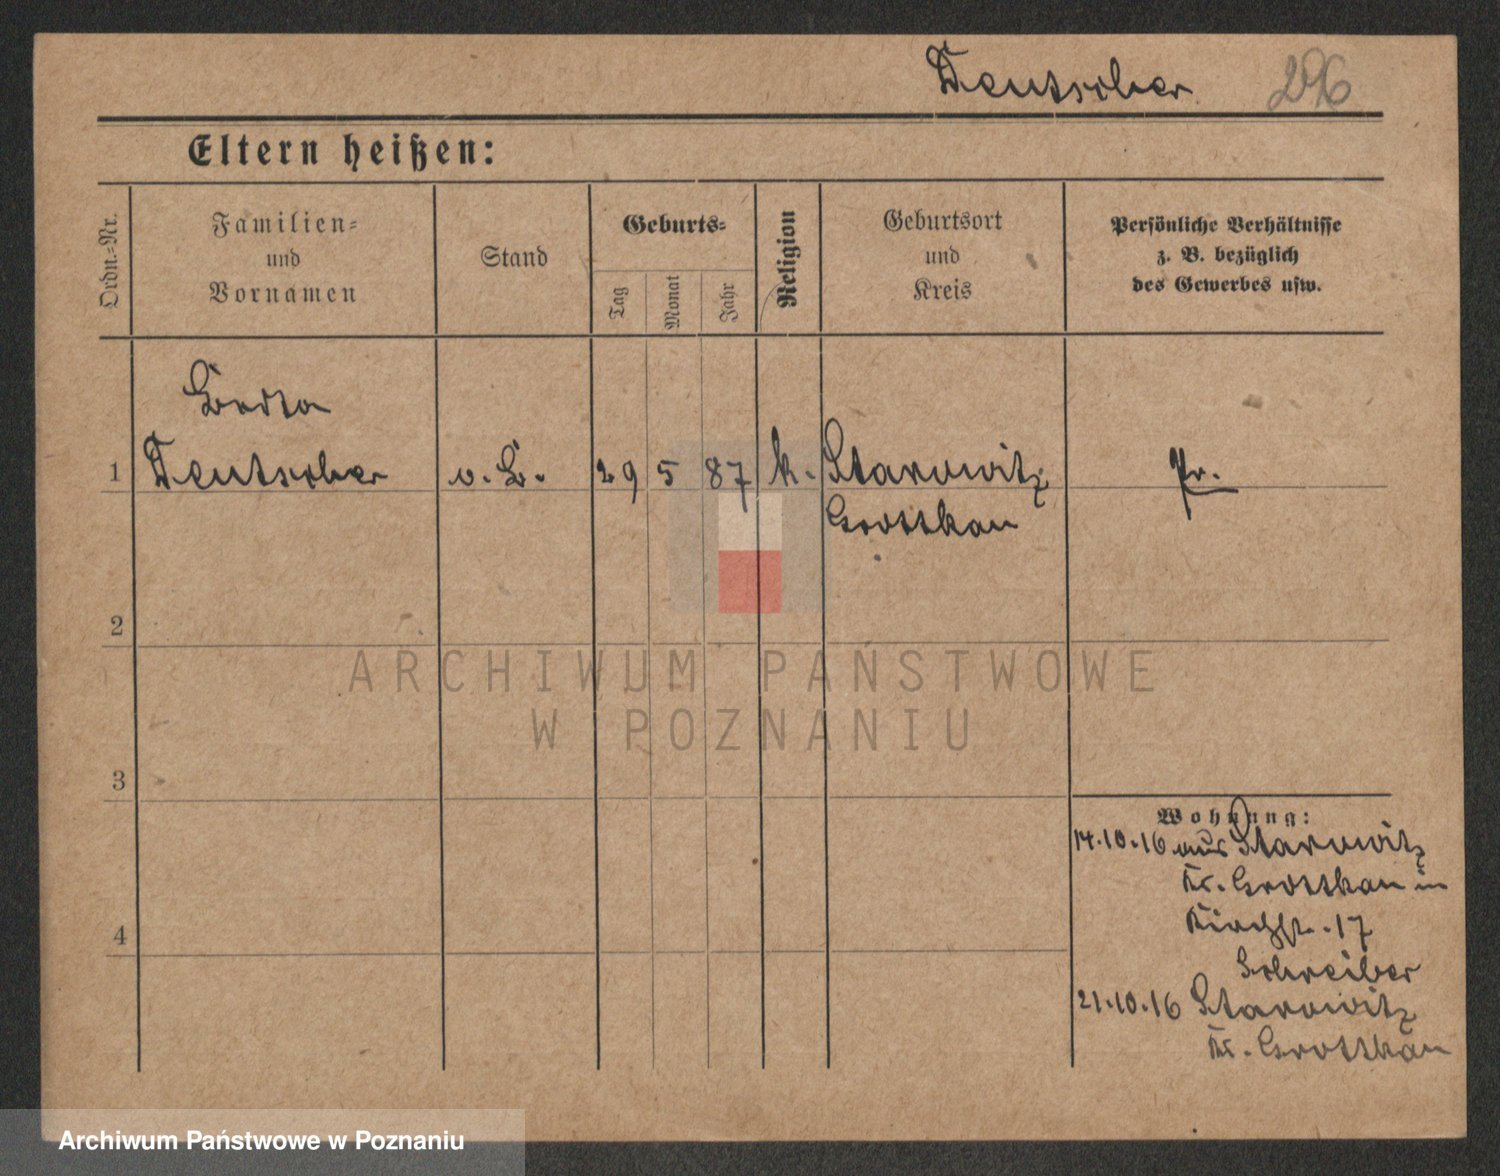 Deutscher 296
Eltern heißen:
Ordn.-Nr.
Familien-
und
Vornamen
Stand
Geburts-
Tag
Monat
Jahr
Religion
Geburtsort
und
Kreis
Persönliche Verhältnisse
z. B. bezüglich
des Gewerbes usw.
1
Deutscher
o. B.
29 5 87
k.
Starowitz
Grottkau
Pr.
2
3
4
Wohnung:
14.10.16 aus Starowitz
Kr. Grottkau in
Kirchstr. 17
Schreiber
21.10.16 Starowitz
Kr. Grottkau
ARCHIWUM PAŃSTWOWE
W POZNANIU
Archiwum Państwowe w Poznaniu